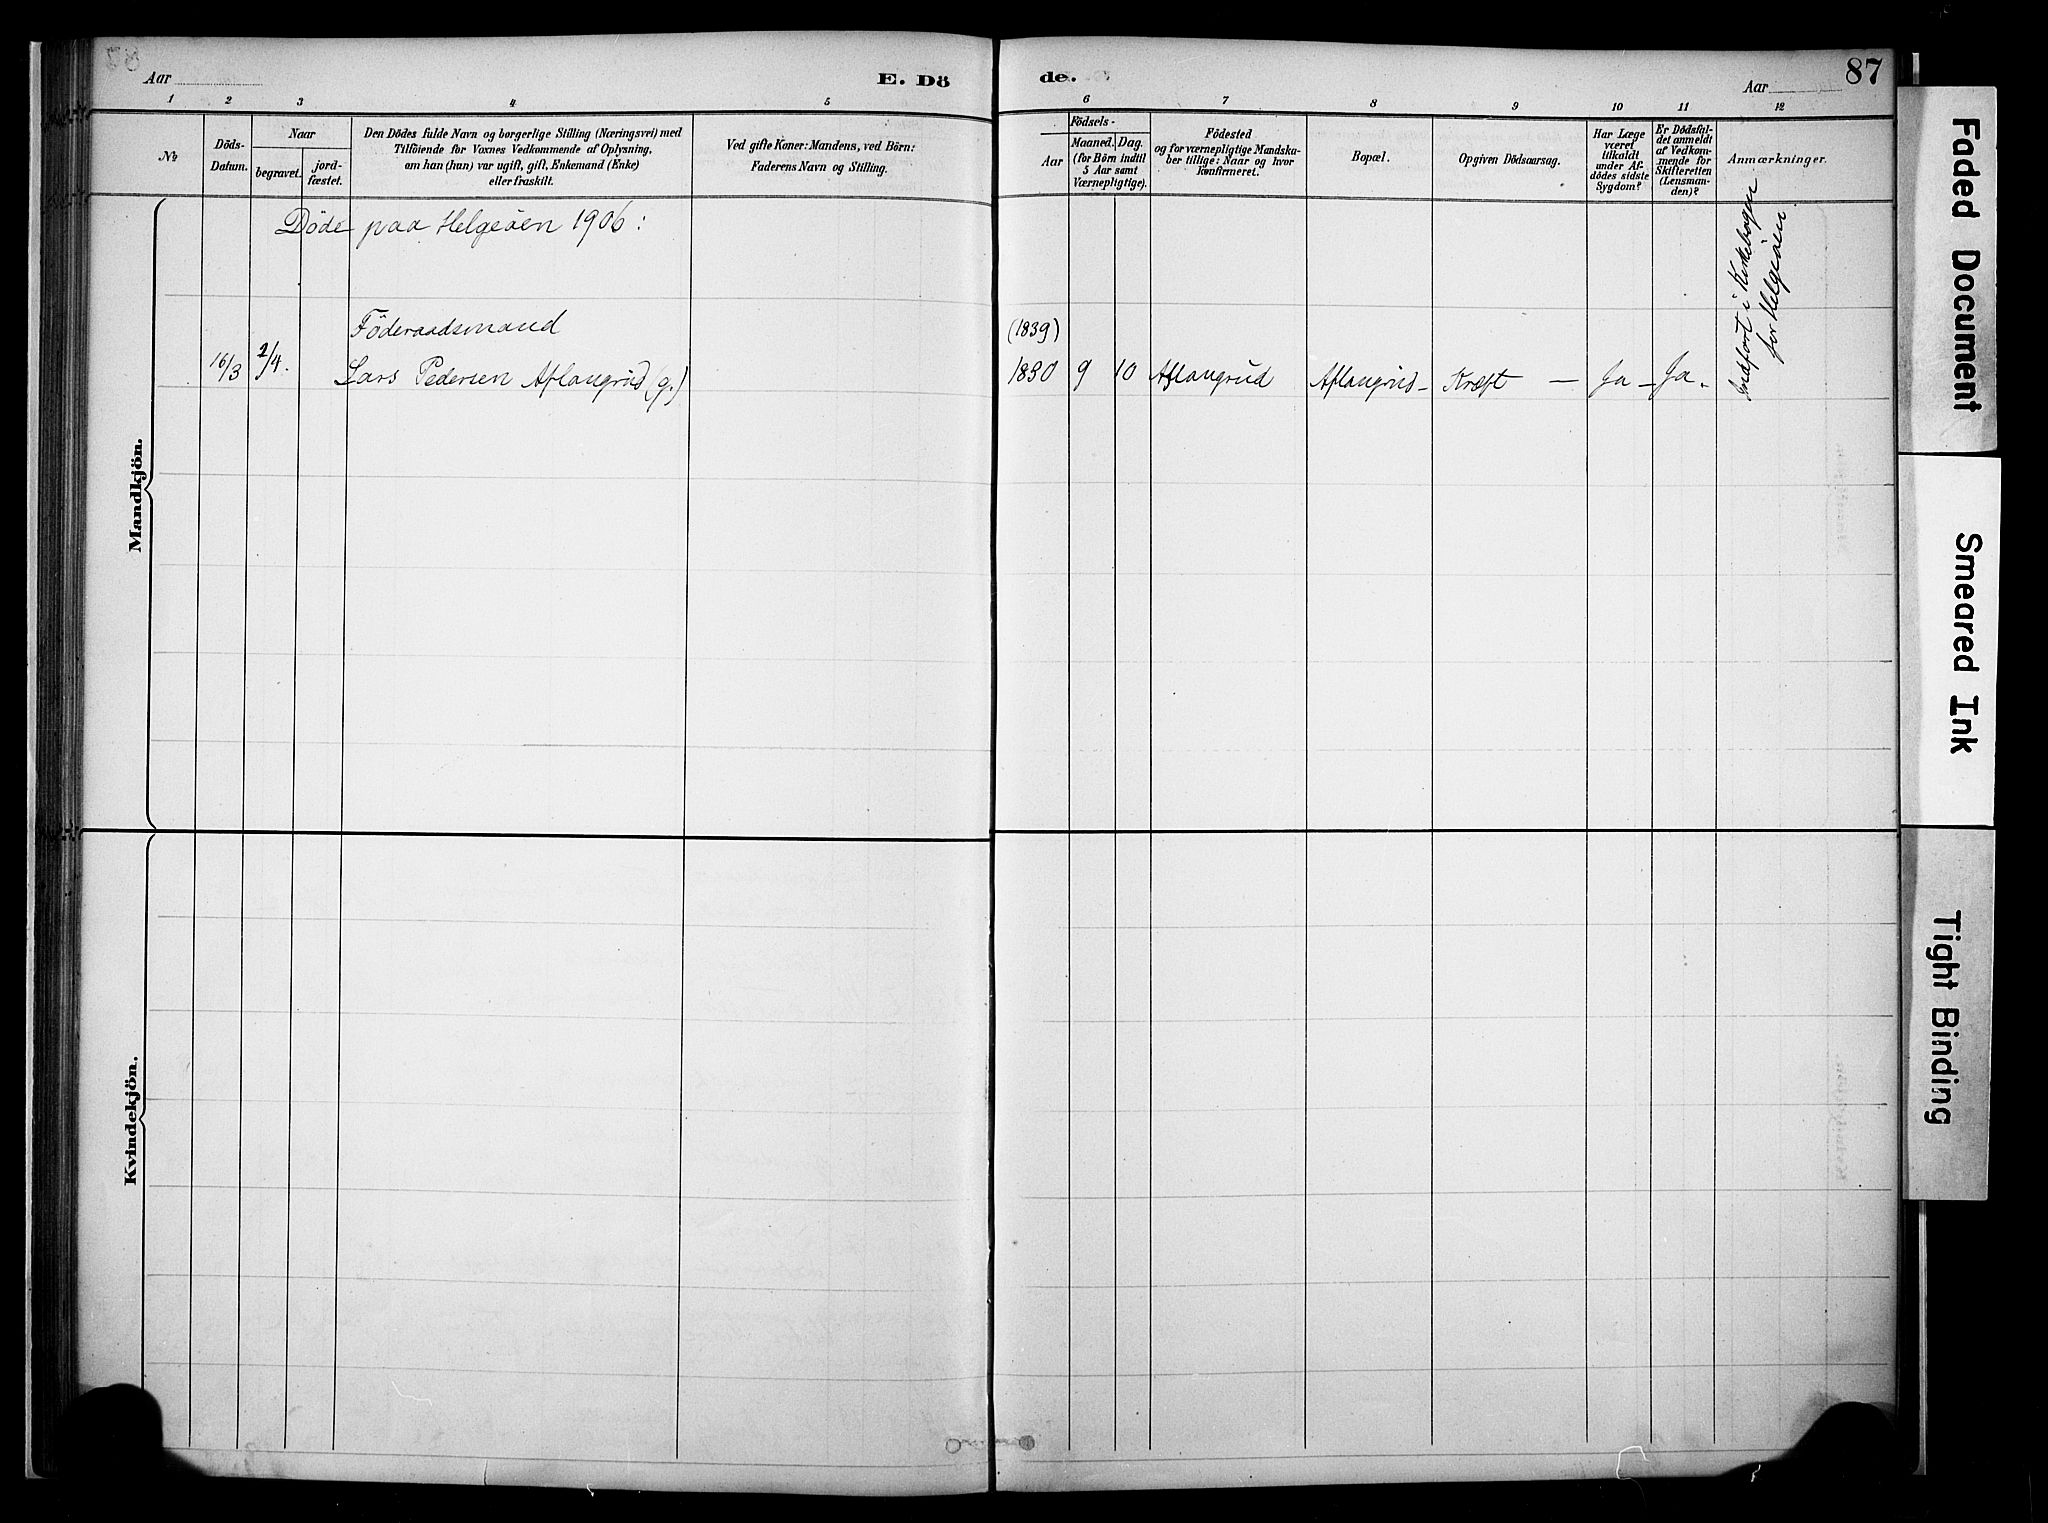 Aar
E. Dö
de.
Aar
87
1 2 3 4 5 6 7 8 9 10 11 12
№
Döds-
Datum.
Naar
begravet.
jord-
fæstet.
Den Dödes fulde Navn og borgerlige Stilling (Næringsvei) med
Tilföiende for Voxnes Vedkommende af Oplysning,
om han (hun) var ugift, gift, Enkemand (Enke)
eller fraskilt.
Ved gifte Koner: Mandens, ved Börn:
Faderens Navn og Stilling.
Födsels-
Aar
Maaned. Dag.
(for Börn indtil
5 Aar samt
Værnepligtige).
Födested
og for værnepligtige Mandska-
ber tillige: Naar og hvor
konfirmeret.
Bopæl.
Opgiven Dödsaarsag.
Har Læge
været
tilkaldt
under Af-
dödes sidste
Sygdom?
Er Dödsfal-
det anmeldt
af Vedkom-
mende for
Skifteretten
(Lensman-
den)?
Anmærkninger.
Döde paa Helgeöen 1906:
Föderaadsmand
(1839)
16/3 2/4. Lars Pedersen Aflangrud (g.) 1830 9 10 Aflangrud Aflangrud - Kræft — Ja - Ja -
Indfört i Kirkebogen
for Helgeöen
Mandkjön.
Kvindekjön.
Faded Document
Smeared Ink
Tight Binding